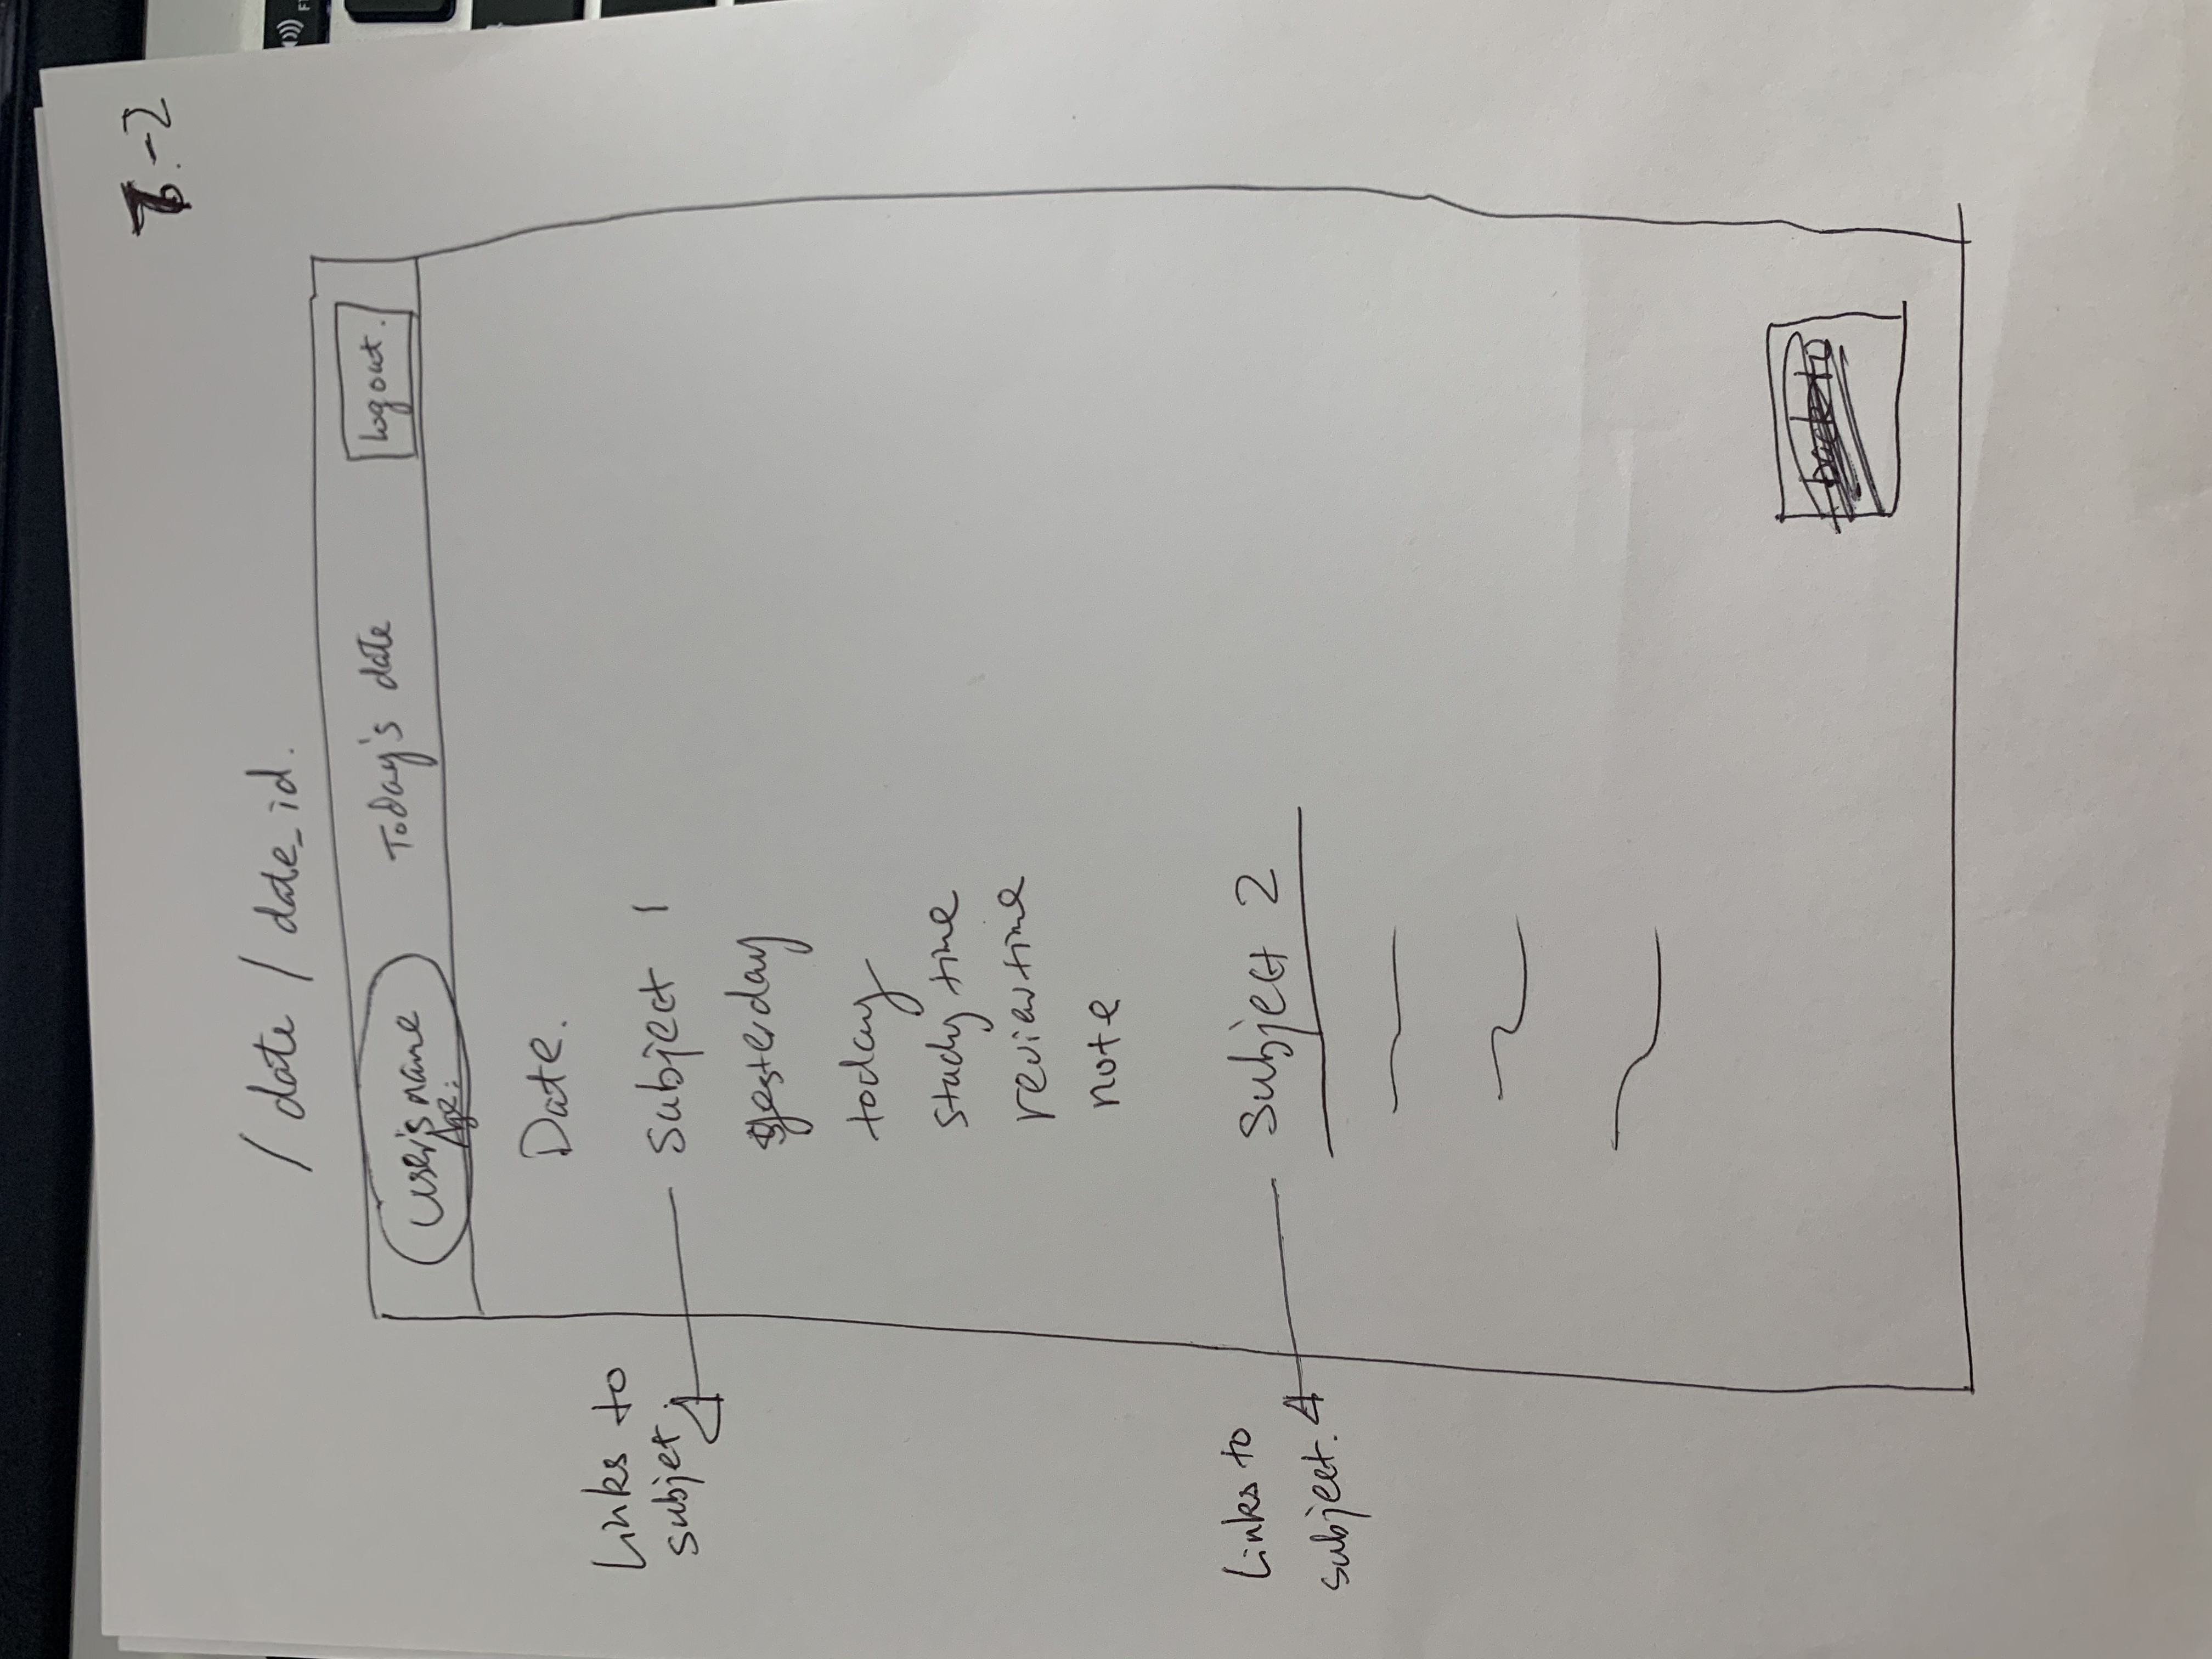 -2
/ date / date_id.
User's name
Age:
Today's date
logout.
Date.
Links to
subjet
subject 1
yesterday
today
study time
review time
note
Links to
subject.
subject 2
back to